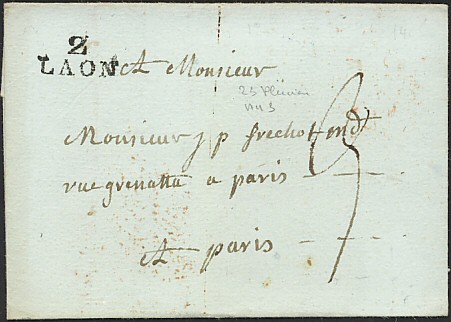 2
LAON
A Monsieur
23 Pluviose
an 3
Monsieur j p frechot md
rue grenatta a paris
A paris